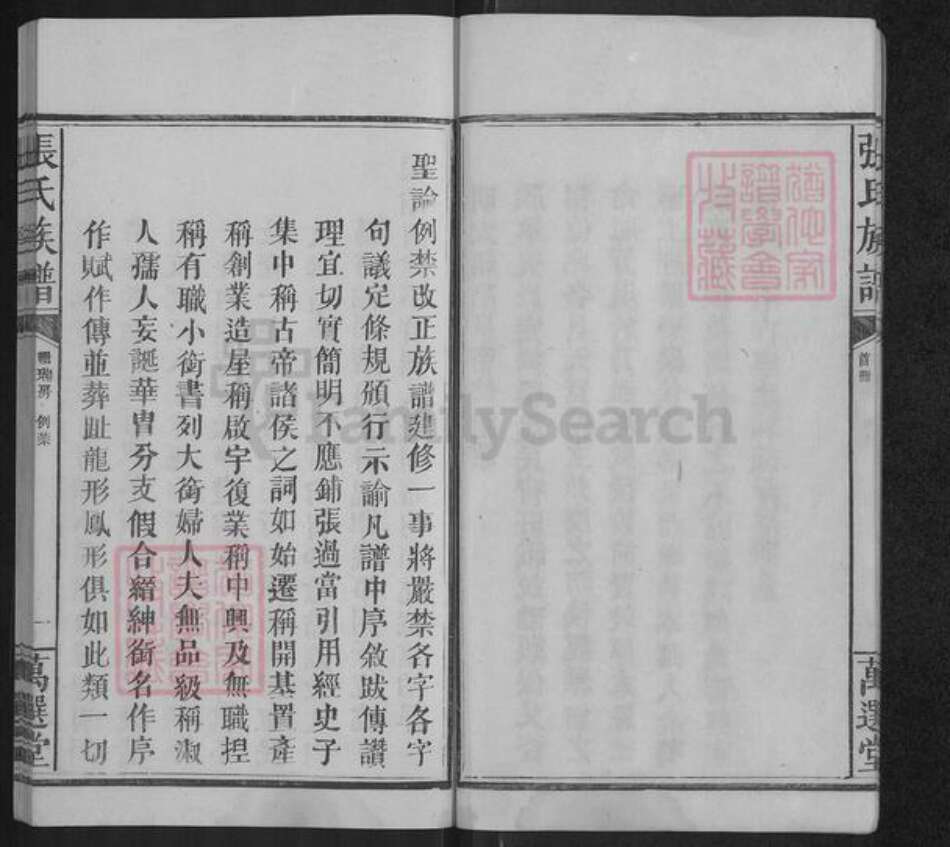 張氏族譜
首冊
萬選堂
聖諭例禁改正族譜建修一事將嚴禁各字各字
句議定條規頒行示諭凡譜中序敘跋傳讚
理宜切實簡明不應鋪張過當引用經史子
集中稱古帝諸侯之詞如始遷稱開基置產
稱創業造屋稱啟宇復業稱中興及無職捏
稱有職小銜書列大銜婦人夫無品級稱淑
人孺人妄誕華冑分支假合縉紳銜名作序
作賦作傳並葬趾龍形鳳形俱如此類一切
張氏族譜
例禁
一
萬選堂
FamilySearch